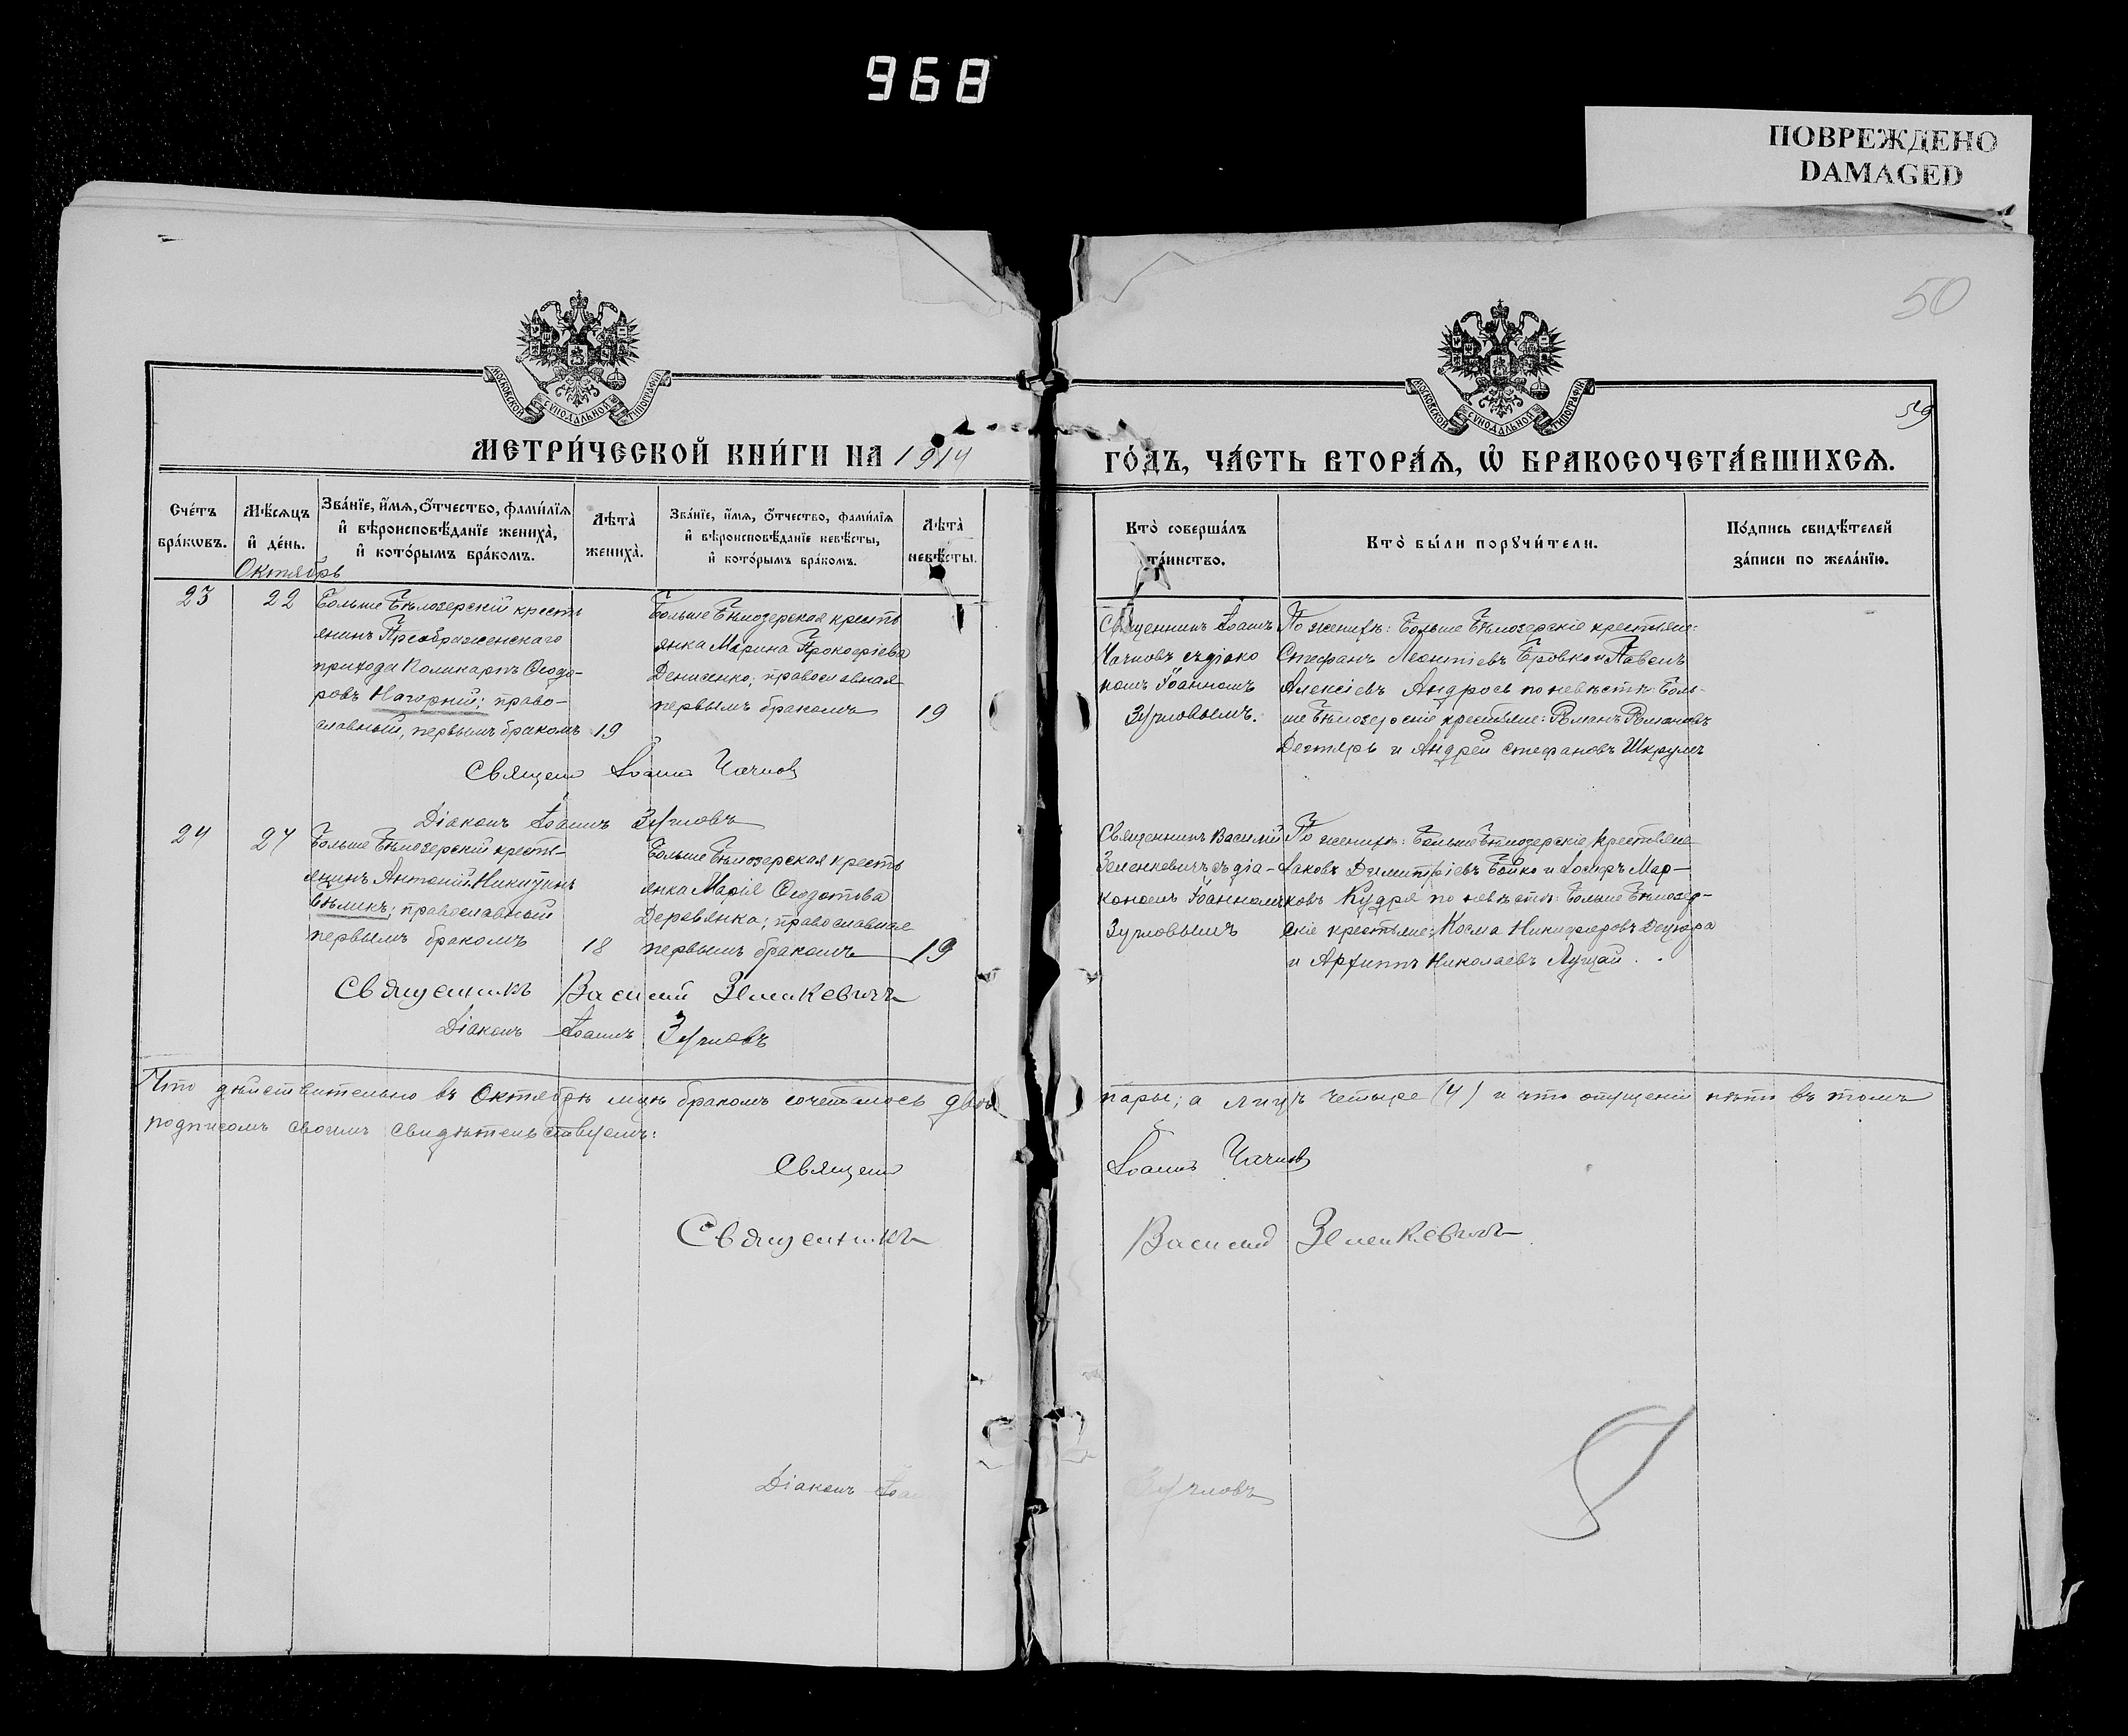 968
ПОВРЕЖДЕНО
DAMAGED
50
МОСКОВСКОЙ СѴНОДАЛЬНОЙ ТИПОГРАФІИ
МОСКОВСКОЙ СѴНОДАЛЬНОЙ ТИПОГРАФІИ
59
МЕТРИ́ЧЕСКОЙ КНИ́ГИ НА 1914
ГО́ДЪ, ЧА́СТЬ ВТОРА́Я, Ѽ БРАКОСОЧЕТА́ВШИХСЯ.
Сче́тъ
бра́кωвъ.
Мѣ́сяцъ
и҆ де́нь.
Октябрь
Зва́нїе, и҆́мя, ѻ҆́тчество, фами́лїя
и҆ вѣроисповѣ́данїе жениха̀,
и҆ кото́рымъ бра́комъ.
Лѣта̀
жениха̀.
Зва́нїе, и҆́мя, ѻ҆́тчество, фами́лїя
и҆ вѣроисповѣ́данїе невѣ́сты,
и҆ кото́рымъ бра́комъ.
Лѣта̀
невѣ́сты.
Кто̀ соверша́лъ
та́инство.
Кто̀ бы́ли порꙋчи́тели.
По́дпись свидѣ́телей
за́писи по жела́нїю.
23
22
Больше Бѣлозерскій кресть
янинъ Преображенскаго
прихода Поликарпъ Ѳеодо-
ровъ Нагорній; право-
славный, первымъ бракомъ
19
Больше Бѣлозерская кресть
янка Марина Прокофіева
Денисенко; православная
первымъ бракомъ
19
Священникъ Іоаннъ
Чачковъ съ діако
номъ Іоанномъ
Зугловымъ.
По женихѣ: Больше Бѣлозерскіе крестьяне:
Стефанъ Леонтіевъ Бровко и Павелъ
Алексіевъ Андрось по невѣстѣ: Боль-
ше Бѣлозерскіе крестьяне: Романъ Романовъ
Дегтярь и Андрей Стефановъ
Священ Іоаннъ
Діаконъ Іоаннъ
24
27
Больше Бѣлозерскій кресть-
янинъ Антоній Никитинъ
Бѣликъ; православный
первымъ бракомъ
18
Больше Бѣлозерская кресть
янка Марія Ѳеодотова
Деревянко; православная
первымъ бракомъ
19
Священникъ Василій
Зеленкевичъ съ діа-
кономъ Іоанномъ
Зугловымъ
По женихѣ: Больше Бѣлозерскіе крестьяне
Іаковъ Димитріевъ Бойко и Іосифъ Мар-
ковъ Кудря по невѣстѣ: Больше Бѣлозер-
скіе крестьяне: Косма Никифоровъ
и Архиппъ Николаевъ Луцай.
Священникъ Василій Зеленкевичъ
Діаконъ Іоаннъ
Что дѣйствительно въ Октябрѣ мцѣ бракомъ сочеталось двѣ пары; а лицъ четыре (4) и что опущеній нѣтъ въ томъ
подписомъ своимъ свидѣтельствуемъ:
Священ Іоаннъ
Священникъ Василій Зеленкевичъ
Діаконъ